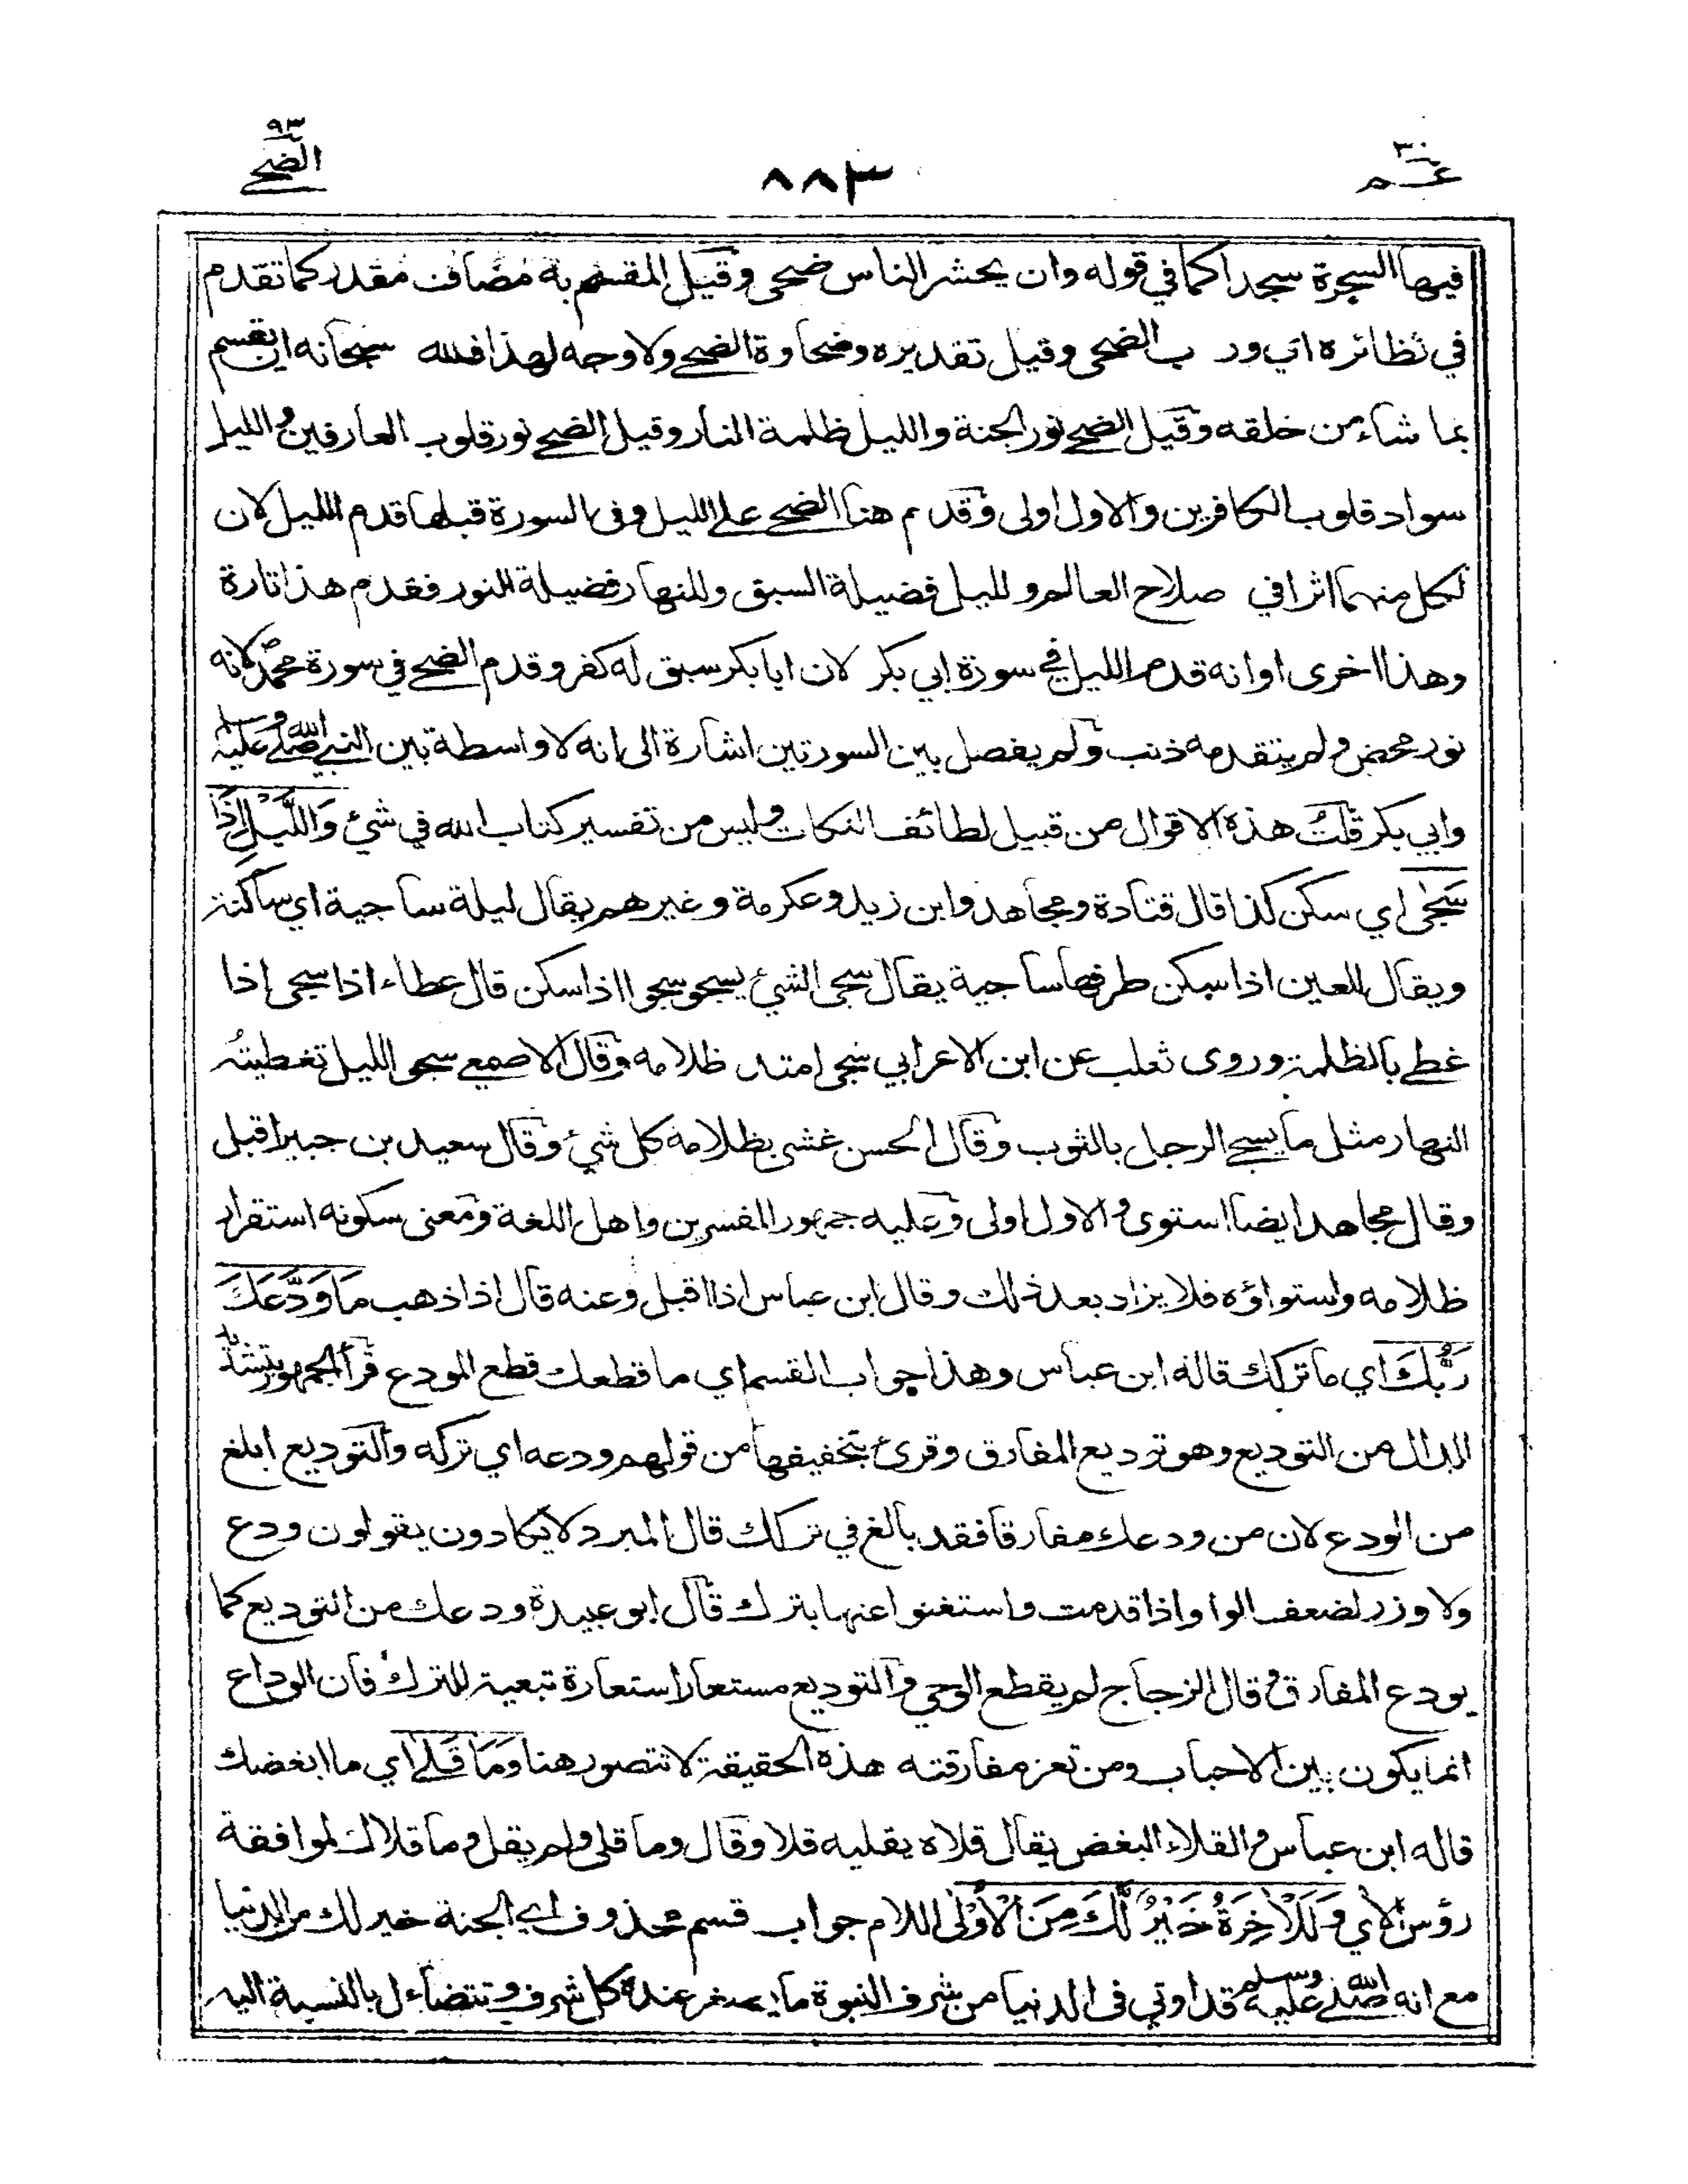 ٣٠
عم
٨٨٣
٩٣
الضحى
فيها السجرة سجدا كما في قوله وان يحشر الناس ضحى وقيل المقسم به مضاف مقدر كما تقدم
في نظائره اي ورب الضحى وقيل تقديره وضحاوة الضحى ولا وجه لهذا فلله سبحانه ان يقسم
بما شاء من خلقه وقيل الضحى نور الجنة والليل ظلمة النار وقيل الضحى نور قلوب العارفين والليل
سواد قلوب الكافرين والاول اولى وقدم هنا الضحى على الليل وفي السورة قبلها قدم الليل لان
لكل منهما اثرا في صلاح العالم ولليل فضيلة السبق وللنهار فضيلة النور فقدم هذا تارة
وهذا اخرى او انه قدم الليل في سورة ابي بكر لان ابا بكر سبق له كفر وقدم الضحى في سورة محمد لانه
نور محض ولم يتقدمه ذنب ولم يفصل بين السورتين اشارة الى انه لا واسطة بين النبي صلى الله عليه وسلم
وابي بكر قلت هذه الاقوال من قبيل لطائف النكات وليس من تفسير كتاب الله في شئ وَاللَّيْلِ إِذَا
سَجٰى اي سكن كذا قال قتادة ومجاهد وابن زيد وعكرمة وغيرهم يقال ليلة ساجية اي ساكنة
ويقال للعين اذا سكن طرفها ساجية يقال سجى الشئ يسجو سجوا اذا سكن قال عطاء اذا سجى إذا
غطى بالظلمة وروى ثعلب عن ابن الاعرابي سجى امتد ظلامه وقال الاصمعي سجو الليل تغطيته
النهار مثل ما يسجى الرجل بالثوب وقال الحسن غشى بظلامه كل شئ وقال سعيد بن جبير اقبل
وقال مجاهد ايضا استوى والاول اولى وعليه جمهور المفسرين واهل اللغة ومعنى سكونه استقرار
ظلامه واستواؤه فلا يزاد بعد ذلك وقال ابن عباس اذا اقبل وعنه قال اذا ذهب مَا وَدَّعَكَ
رَبُّكَ اي ما تركك قاله ابن عباس وهذا جواب القسم اي ما قطعك قطع المودع قرأ الجمهور بتشديد
الدال من التوديع وهو توديع المفارق وقرئ بتخفيفها من قولهم ودعه اي تركه والتوديع ابلغ
من الودع لان من ودعك مفارقا فقد بالغ في تركك قال المبرد لا يكادون يقولون ودع
ولا وذر لضعف الواو اذا قدمت واستغنوا عنها بترك قال ابو عبيدة ودعك من التوديع كما
يودع المفارق وقال الزجاج لم يقطع الوحي والتوديع مستعار استعارة تبعية للترك فان الوداع
انما يكون بين الاحباب ومن تعز مفارقته هذه الحقيقة لا تتصور هنا وَمَا قَلٰى اي ما ابغضك
قاله ابن عباس والقلاء البغض يقال قلاه يقليه قلا وقال وما قلى ولم يقل وما قلاك لموافقة
رؤس الاي وَلَلْاٰخِرَةُ خَيْرٌ لَّكَ مِنَ الْاُوْلٰى اللام جواب قسم محذوف اي الجنة خير لك من الدنيا
مع انه صلى الله عليه وسلم قد اوتي في الدنيا من شرف النبوة ما يصغر عنده كل شرف وتتضاءل بالنسبة اليه